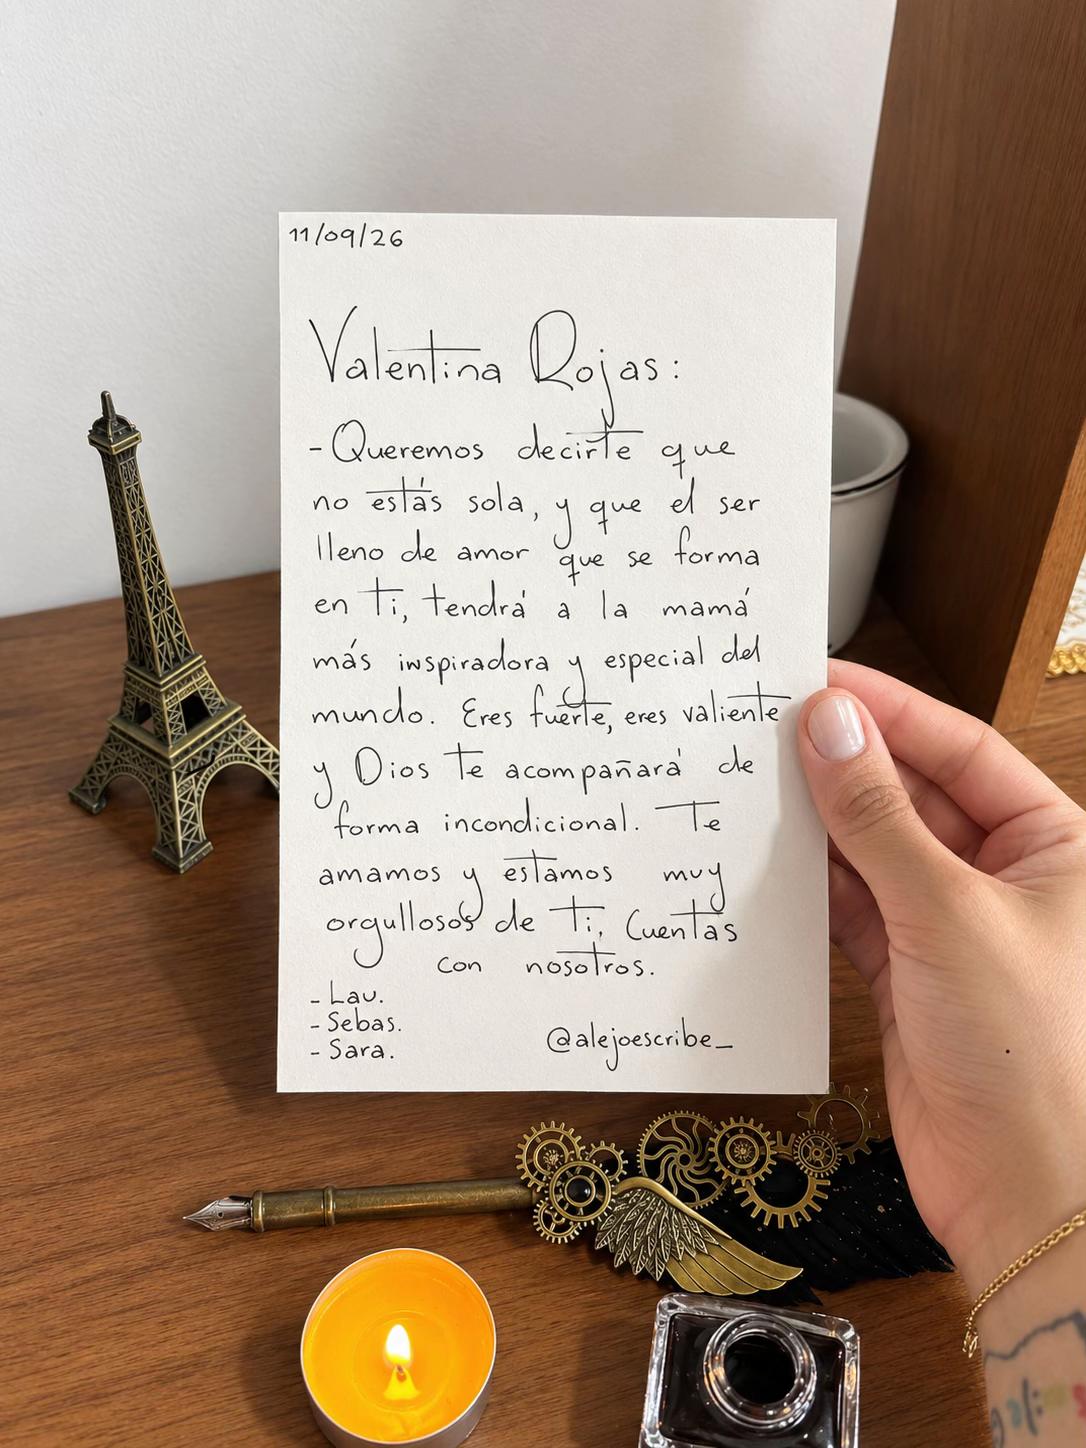 11/09/26
Valentina Rojas:
- Queremos decirte que
no estás sola, y que el ser
lleno de amor que se forma
en ti, tendrá a la mamá
más inspiradora y especial del
mundo. Eres fuerte, eres valiente
y Dios te acompañará de
forma incondicional. Te
amamos y estamos muy
orgullosos de ti, Cuentas
con nosotros.
- Lau.
- Sebas.
- Sara.
@alejoescribe_